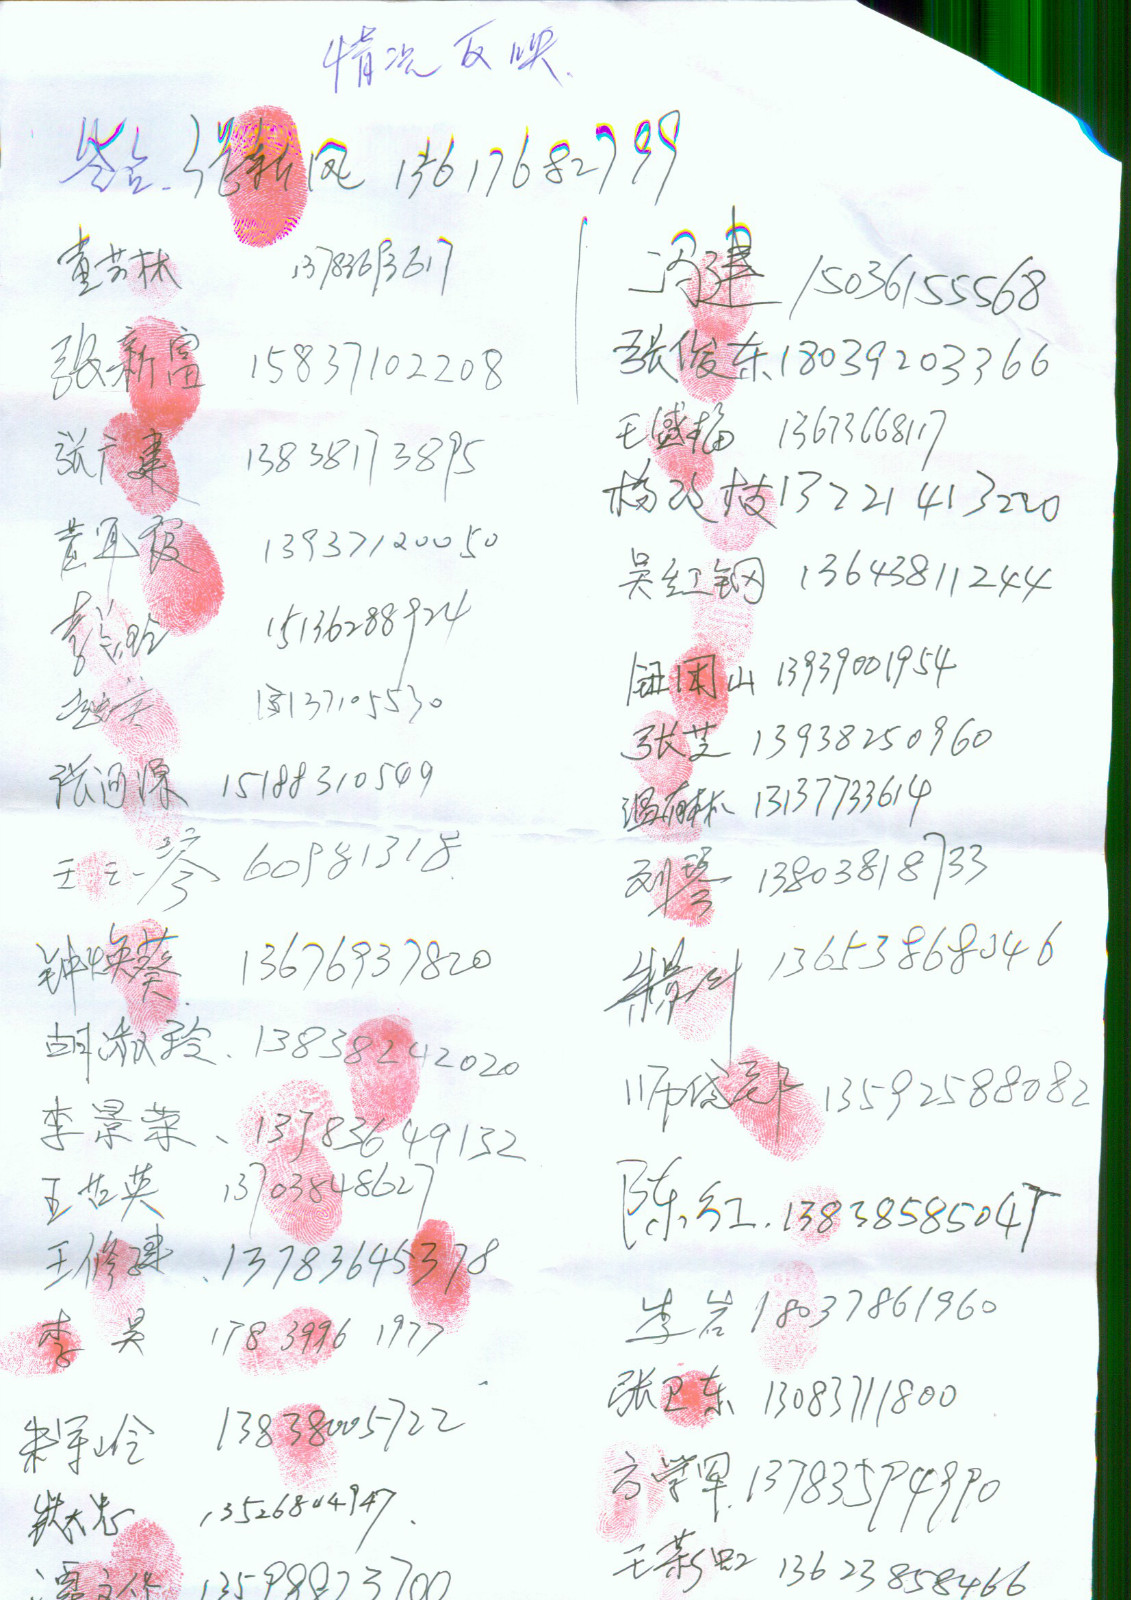 情况反映
签名.张新风 13617682799
童芳林 13783693617
张新富 15837102208
张广建 13838173895
黄 13937120050
15136288924
13137105530
张河源 15188310549
王 彦 60981318
钟焕葵 13676937820
胡淑玲 13838242020
李景荣、13783649132
王芬英 13703848627
王修建 13783645378
李昊 178 3996 1977
13838005722
13526804947
文华 13598823700
冯建 15036155568
张俊东 18039203366
王盛梅 13673668117
杨改枝 13221413220
吴红钢 13643811244
钮国山 13939001954
张芝 13938250960
温有林 13137733614
刘琴 13803818733
13653868046
师 13592588082
陈红. 13838585047
李岩 18037861960
张卫东 13083711800
方学军 13783594990
王 13623858466